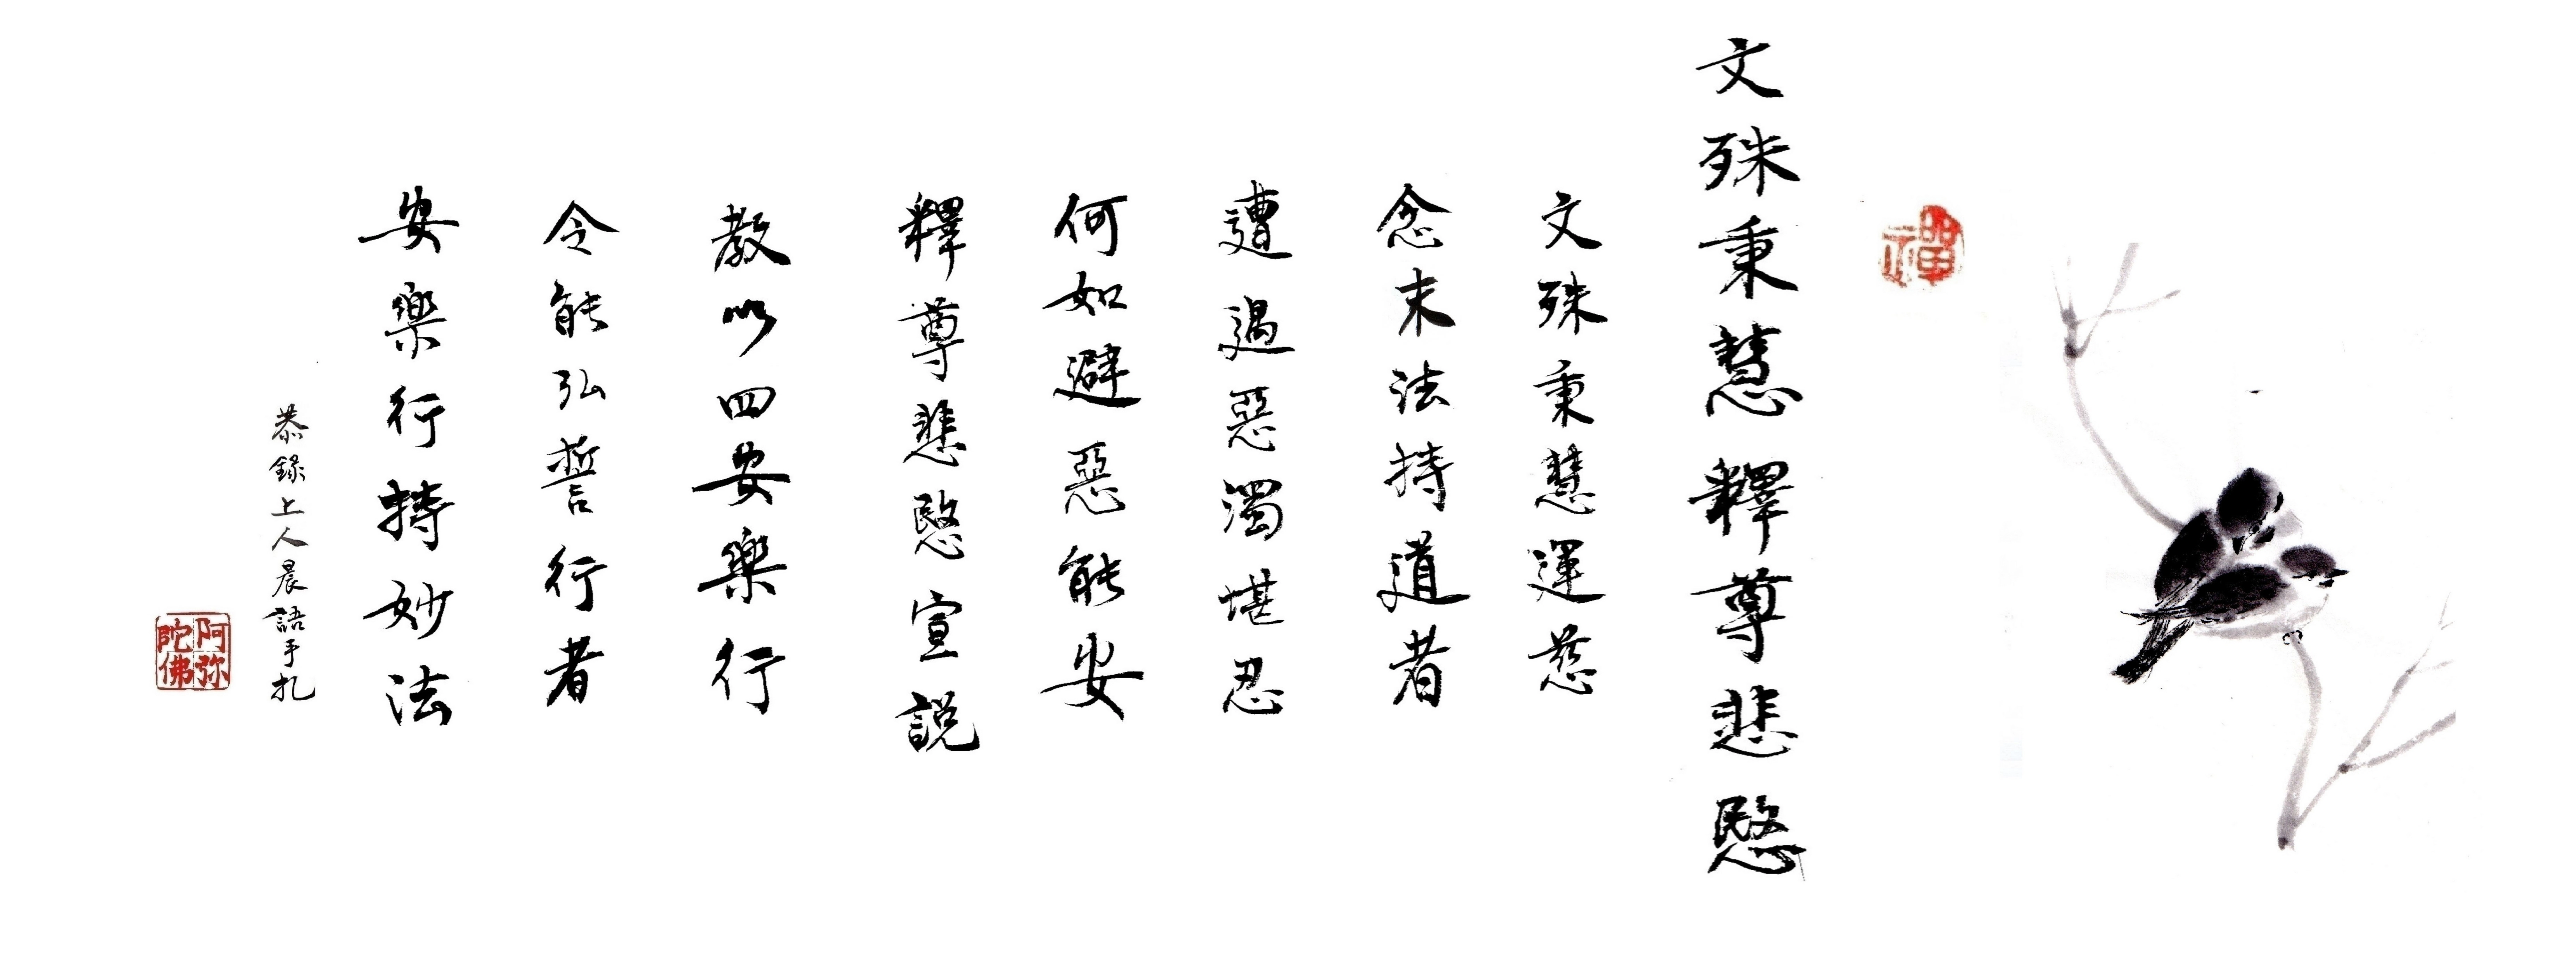 禪
文殊秉慧釋尊悲愍
文殊秉慧運慈
念末法持道者
遭遇惡濁堪忍
何如避惡能安
釋尊悲愍宣說
教以四安樂行
令能弘誓行者
安樂行持妙法
恭錄上人晨語手扎
阿弥陀佛